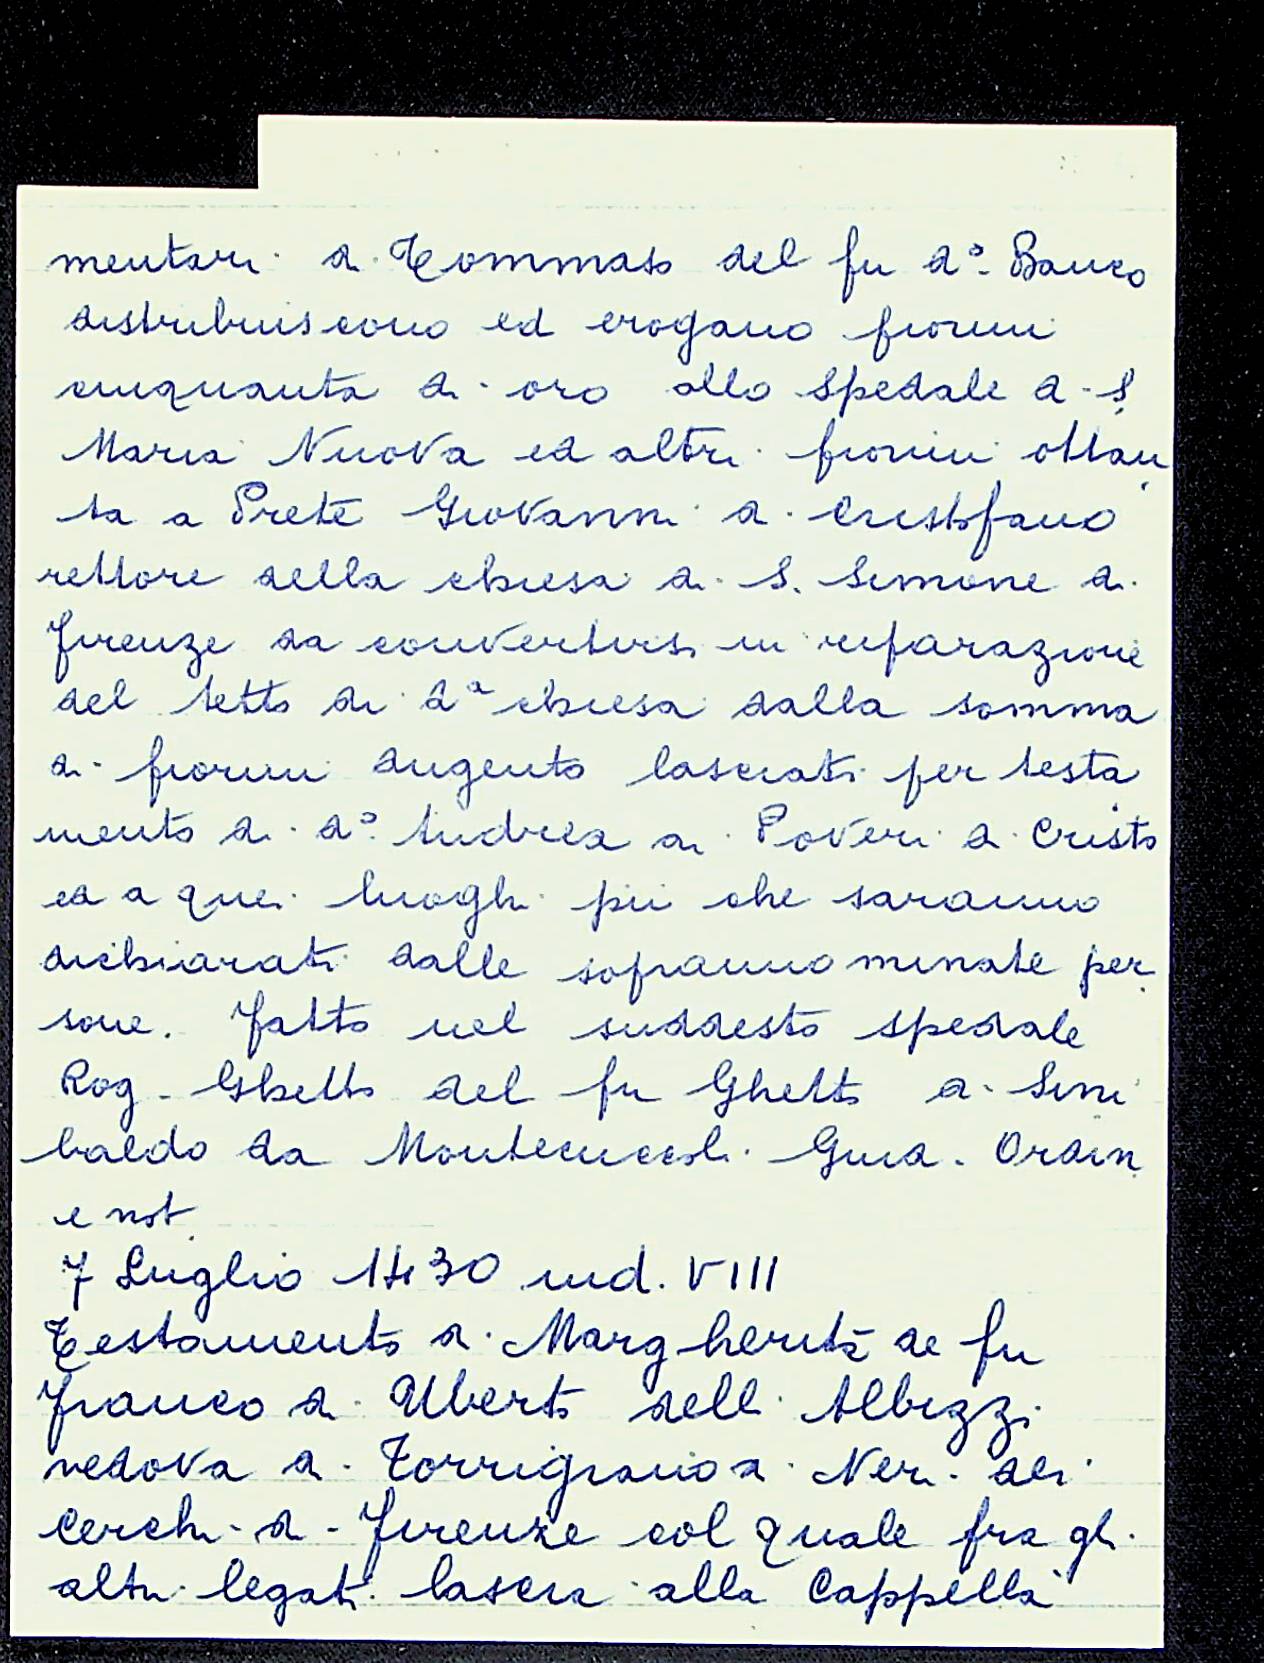 mentari di Tommaso del fu d.º Banco
distribuiscono ed erogano fiorini
cinquanta di oro allo spedale di S.
Maria Nuova ed altri fiorini ottan
ta a Prete Giovanni di Cristofano
rettore della chiesa di S. Simone di
Firenze da convertirsi in riparazione
del tetto di d.ª chiesa dalla somma
di fiorini dugento lasciati per testa
mento di d.º Andrea ai Poveri di Cristo
ed a quei luoghi pii che saranno
dichiarati dalle soprannominate per
sone. Fatto nel suddesto spedale
Rog. Ghetto del fu Ghetto di Sini
baldo da Montecuccoli Giud. Ordin
e not.
7 Luglio 1430 ind. VIII
Testamento di Margherita de fu
Franco di Uberto delli Albizzi
vedova di Torrigiano di Neri dei
Cerchi di Firenze col quale fra gli
altri legati lascia alla Cappella